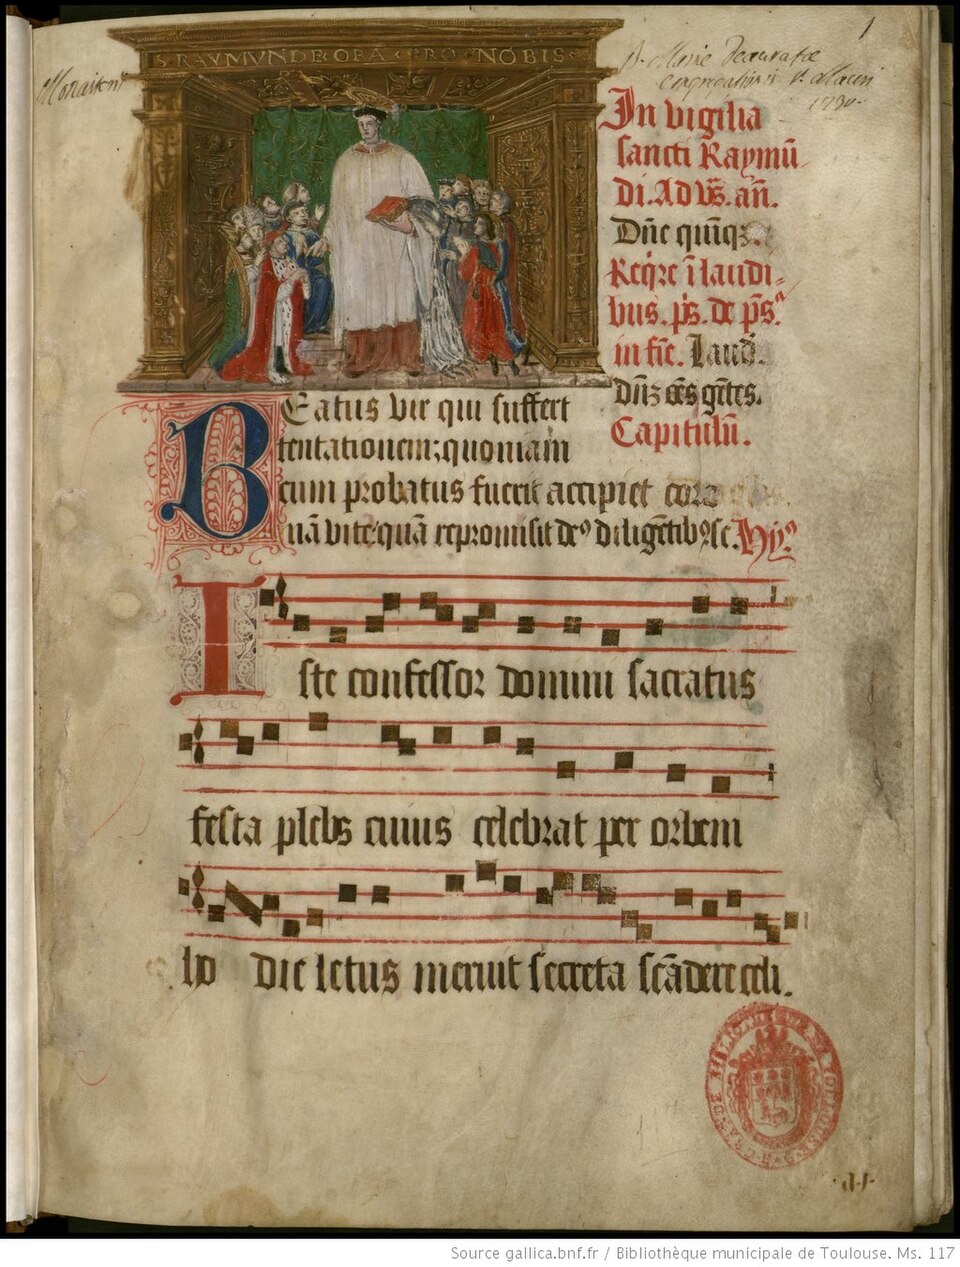 S · RAYMVNDE · ORA · PRO · NOBIS
1
B. Marie Deauratæ
1790
In vigilia
sancti Raymū
di. Ad vs̄. añ.
Dñe quīqꝫ.
Reqͥre ī laudi-
bus. ps̄. de ps̄.
in fíc. Laud.
Dñꝫ oēs gētes.
Capitulū.
BEatus vir qui suffert
tentationem: quoniam
cum probatus fuerit accipiet coro
nā vite quā repromisit deꝰ diligētibꝰ se. Hyº
Iste confessor domini sacratus
festa plebs cuius celebrat per orbem
ho die letus meruit secreta scādere celi.
117
Source gallica.bnf.fr / Bibliothèque municipale de Toulouse. Ms. 117